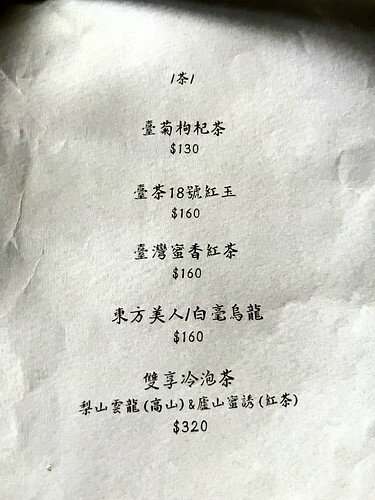 /茶/
臺菊枸杞茶
$130
臺茶18號紅玉
$160
臺灣蜜香紅茶
$160
東方美人/白毫烏龍
$160
雙享冷泡茶
梨山雲龍(高山)&廬山蜜誘(紅茶)
$320